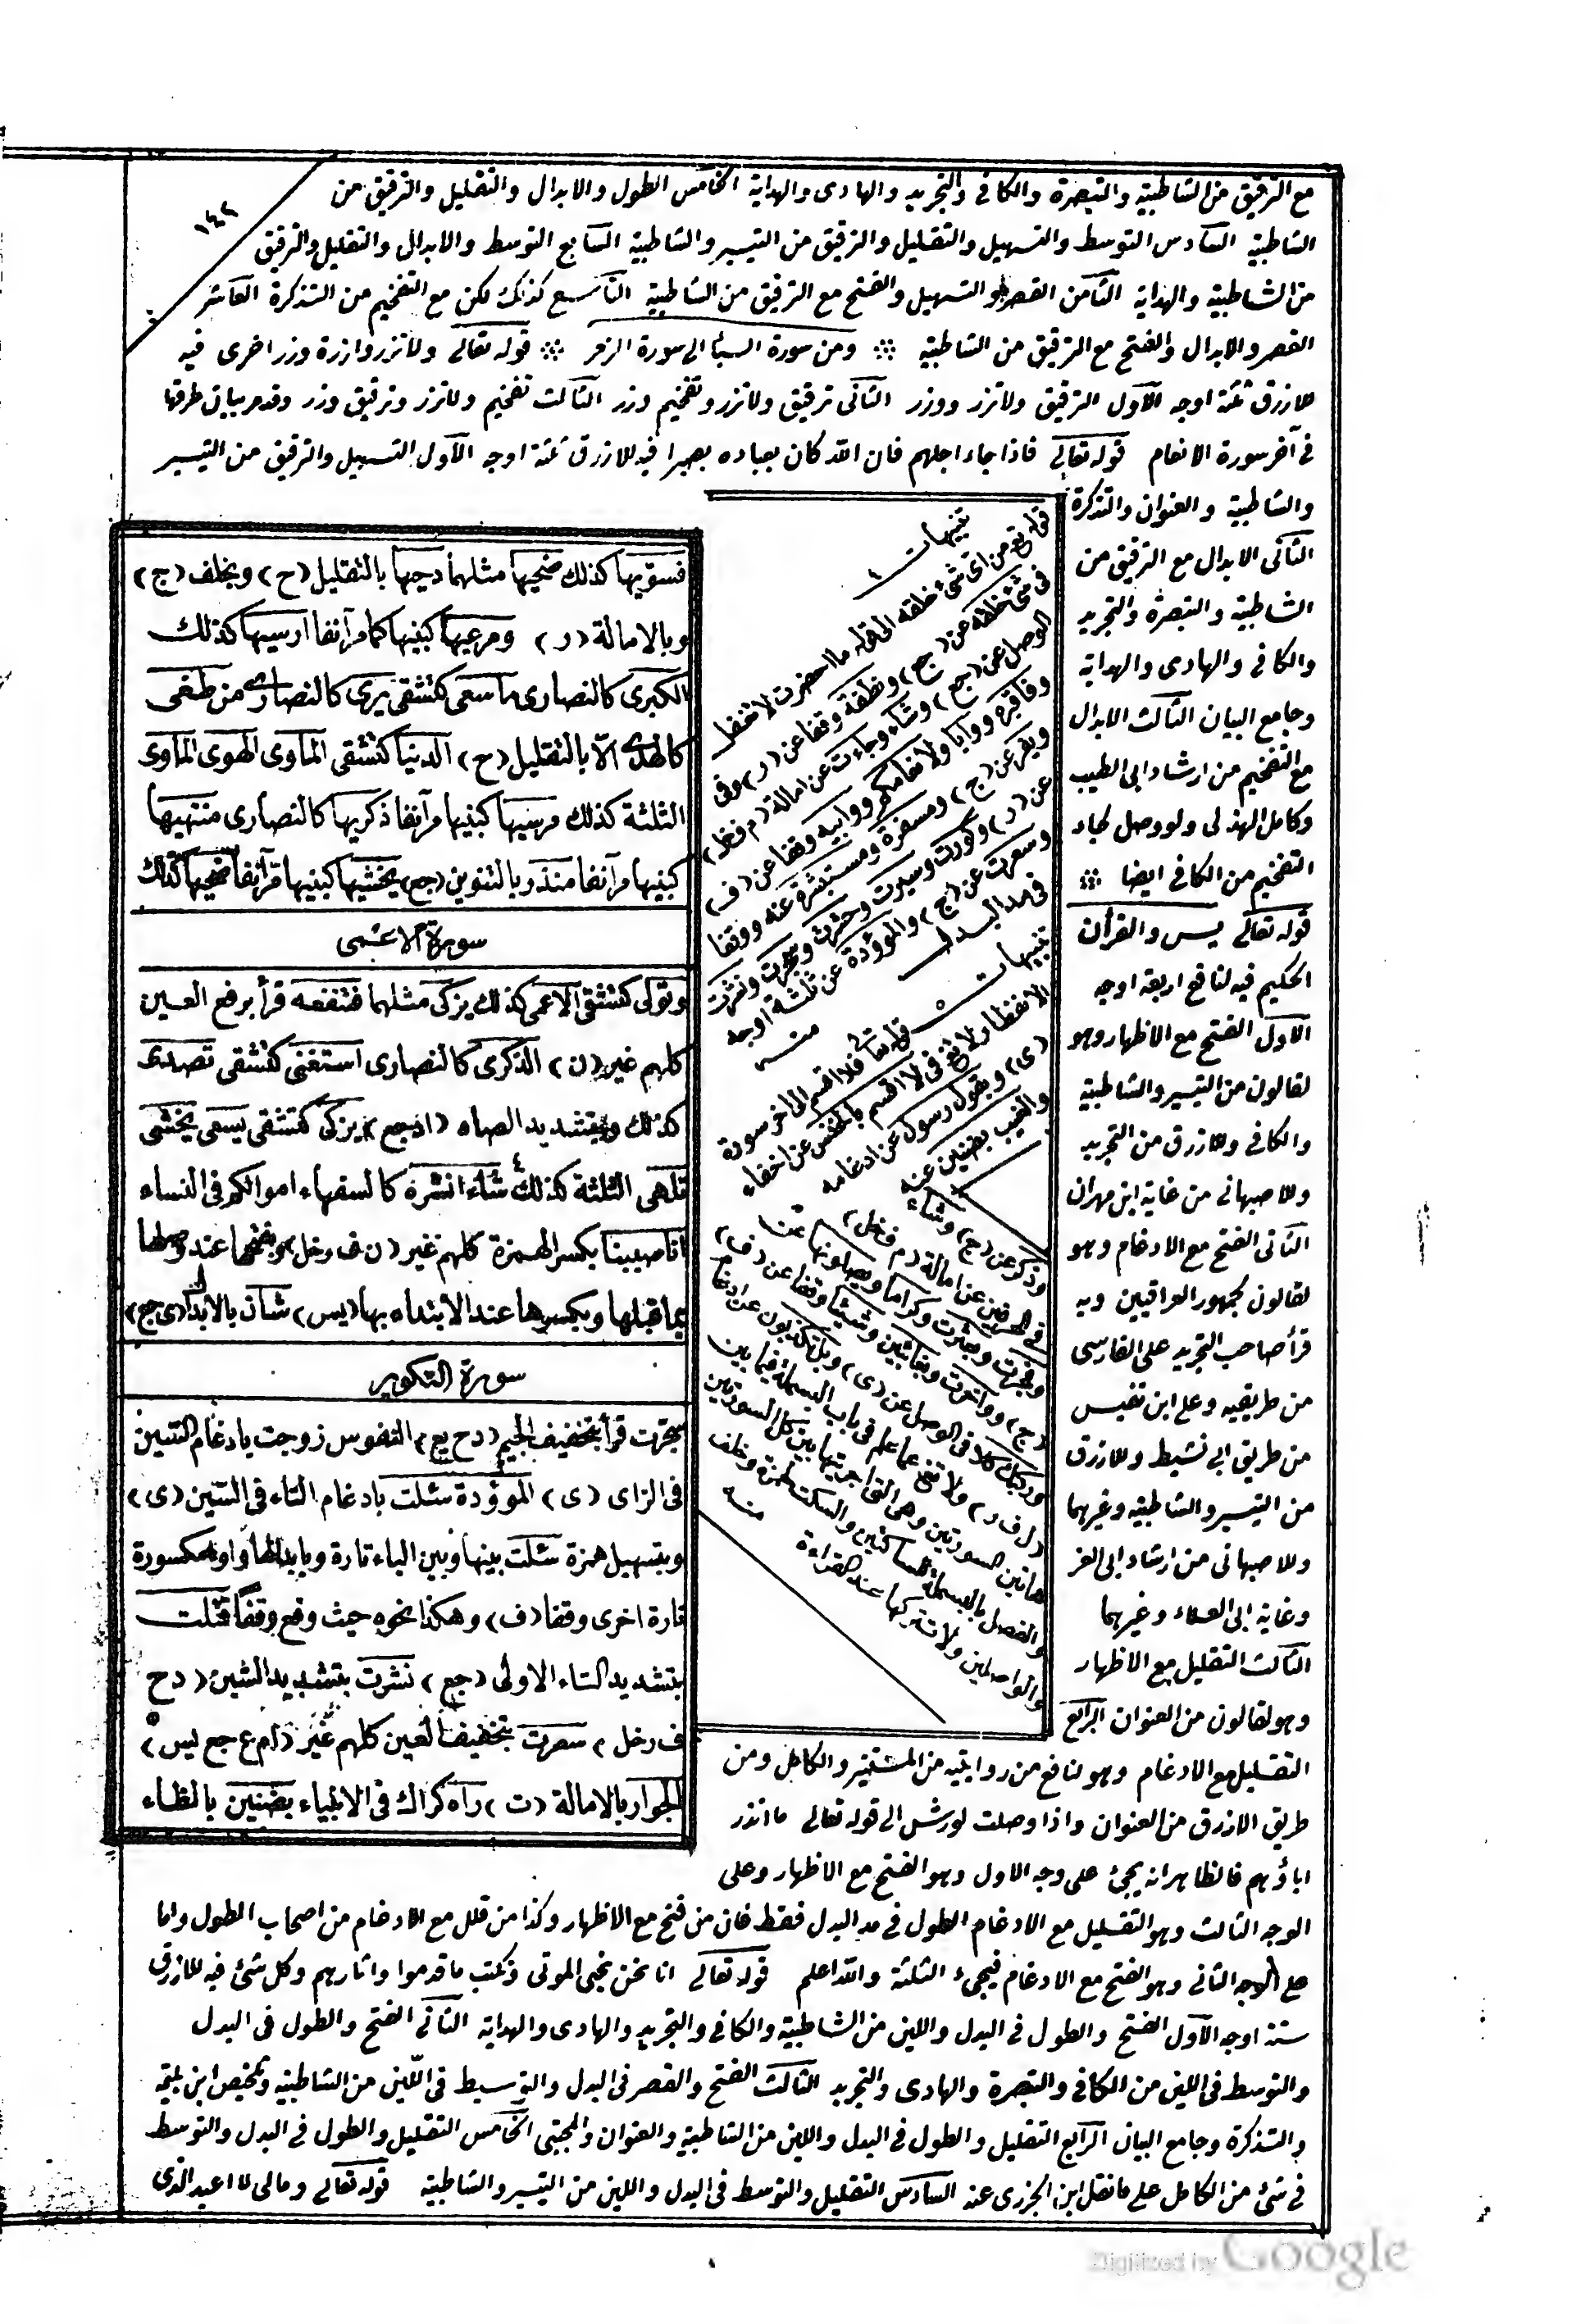 ١٤٢
مع الترقيق من الشاطبية والتبصرة والكافى والتجريد والهادى والهداية الخامس الطول والابدال والتقليل والترقيق من
الشاطبية السادس التوسط والتسهيل والتقليل والترقيق من التيسير والشاطبية السابع التوسط والابدال والتقليل والترقيق
من الشاطبية والهداية الثامن القصر والتسهيل والفتح مع الترقيق من الشاطبية التاسع كذلك لكن مع التفخيم من التذكرة العاشر
القصر والابدال والفتح مع الترقيق من الشاطبية ومن سورة السبأ الى سورة الزمر قوله تعالى ولا تزر وازرة وزر اخرى فيه
للازرق ثلثة اوجه الاول الترقيق ولا تزر ووزر الثانى ترقيق ولا تزر وتفخيم وزر الثالث تفخيم ولا تزر وترقيق وزر وقد مر بيان طرقها
فى آخر سورة الانعام قوله تعالى فاذا جاء اجلهم فان الله كان بعباده بصيرا فيه للازرق ثلثة اوجه الاول التسهيل والترقيق من التيسير
والشاطبية والعنوان والتذكرة
الثانى الابدال مع الترقيق من
الشاطبية والتبصرة والتجريد
والكافى والهادى والهداية
وجامع البيان الثالث الابدال
مع التفخيم من ارشاد ابى الطيب
وكامل الهذلى ولو وصل لجاء
التفخيم من الكافى ايضا
قوله تعالى يس والقرأن
الحكيم فيه لنافع اربعة اوجه
الاول الفتح مع الاظهار وهو
لقالون من التيسير والشاطبية
والكافى وللازرق من التجريد
وللاصبهانى من غاية ابن مهران
الثانى الفتح مع الادغام وهو
لقالون لجمهور العراقيين وبه
قرأ صاحب التجريد على الفارسى
من طريقيه وعلى ابن نفيس
من طريق ابى نشيط وللازرق
من التيسير والشاطبية وغيرهما
وللاصبهانى من ارشاد ابى العز
وغاية ابى العلاء وغيرهما
الثالث التقليل مع الاظهار
وهو لقالون من العنوان الرابع
التقليل مع الادغام وهو لنافع من روايتيه من المستنير والكامل ومن
طريق الازرق من العنوان واذا وصلت لورش الى قوله تعالى ما انذر
اباؤهم فالظاهر انه يجئ على وجه الاول وهو الفتح مع الاظهار وعلى
الوجه الثالث وهو التقليل مع الادغام الطول فى مد البدل فقط فان من فتح مع الاظهار وكذا من قلل مع الادغام من اصحاب الطول واما
على الوجه الثانى وهو الفتح مع الادغام فيجىء الثلثة والله اعلم قوله تعالى انا نحن نحيى الموتى ونكتب ما قدموا واثارهم وكل شئ فيه للازرق
ستة اوجه الاول الفتح والطول فى البدل واللين من الشاطبية والكافى والتجريد والهادى والهداية الثانى الفتح والطول فى البدل
والتوسط فى اللين من الكافى والتبصرة والهادى والتجريد الثالث الفتح والقصر فى البدل والتوسيط فى اللين من الشاطبية وتلخيص ابن بليمة
والتذكرة وجامع البيان الرابع التقليل والطول فى البدل واللين من الشاطبية والعنوان والمجتبى الخامس التقليل والطول فى البدل والتوسط
فى شئ من الكامل على ما نقل ابن الجزرى عنه السادس التقليل والتوسط فى البدل واللين من التيسير والشاطبية قوله تعالى ومالى لا اعبد الذى
تنبيهات
قوله تع من اى شئ خلقه الى قوله ما احضرت لا تغفل
فى شئ خلقه عن (ج) ونطفة وقفا عن (ر) وفى
الوصل عن (جع) وشاء وجاءت عن امالة (م فظ)
وفاقبره ووابا ولانعامكم ووابيه وقفا عن (ف)
ويفر عن (ج) ومسفرة ومستبشرة عنه ووقفا
عن (ر) وكورت وسيرت وحشرت وسجرت ونشرت
وسعرت عن (ج) والموؤدة عن ثلثة اوجه
فى مد البدل منه
تنبيهات
قوله تعا فلا اقسم الى اخر سورة
الانفطار لا تغ فى لا اقسم بالخنس عن اخفاء
(ى) وبقول رسول عن ادغامه
والغيب بضنين عنه
وذكر عن (ج) وشاء
فى الحرفين عن امالة (م فخل)
وفجرت وبعثرت وكراما ويصلونها
(ج) وبغائبين وشيئا وقفا عن (ف)
وركبك كلا فى الوصل عن (ى) وبل تكذبون عن ادغام
(ل ف ر) ولا تغ عما علم فى باب البسملة فيما بين
هاتين السورتين وهى التى اجريتها بين كل السورتين
والفصل بالبسملة للساكتين والسكت لحمزة وخلف
والواصلين ولا تتركها عند القراءة منه
فسويها كذلك ضحيها مثلهما دحيها بالتقليل (ح) وبخلف (ج)
وبالامالة (ر) ومرعيها كبنيها كما مر آنفا ارسيها كذلك
الكبرى كالنصارى ما سعى كتشقى يرى كالنصارى من طغى
كالهدى الا بالتقليل (ح) الدنيا كتشقى الماوى الهوى الماوى
الثلثة كذلك مرسيها كبنيها مر آنفا ذكريها كالنصارى منتهيها
كبنيها مر آنفا منذر بالتنوين (جع) يخشيها كبنيها مر آنفا ضحيها كذلك
سورة الاعمى
وتولى كتشقى الاعمى كذلك يزكى مثلهما فتنفعه قرأ برفع العين
كلهم غير (ن) الذكرى كالنصارى استغنى كتشقى تصدى
كذلك وبتشديد الصاد (ا د جع) يزكى كتشقى يسعى يخشى
تلهى الثلثة كذلك شاء انشره كالسفهاء اموالكم فى النساء
انا صببنا بكسر الهمزة كلهم غير (ن ف رخل) وبفتحها عند وصلها
بما قبلها وبكسرها عند الابتداء بها (يس) شان بالابدال (ى جع)
سورة التكوير
سجرت قرأ بتخفيف الجيم (د ح يع) النفوس زوجت بادغام السين
فى الزاى (ى) الموؤدة سئلت بادغام التاء فى السين (ى)
وبتسهيل همزة سئلت بينها وبين الياء تارة وبابدالها واوا مكسورة
تارة اخرى وقفا (ف) وهكذا نحوه حيث وقع وقفا قتلت
بتشديد التاء الاولى (جع) نشرت بتشديد الشين (د ح
ف رخل) سعرت بتخفيف العين كلهم غير (ا م ع جع يس)
الجوار بالامالة (ت) راه كراك فى الانبياء بضنين بالظاء
Digitized by Google